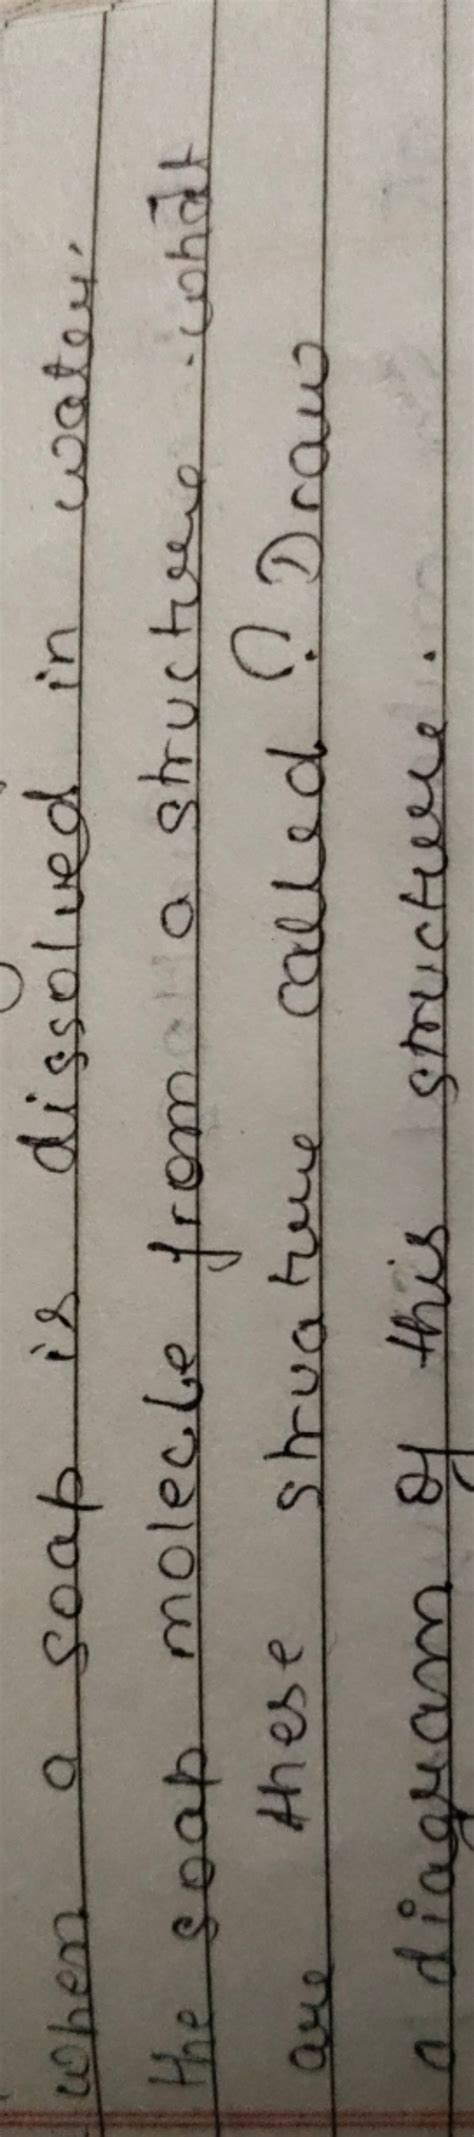 when a soap is dissolved in water.
the soap molecle from a structure. what
are these struature called ? Draw
a diagram of this structure.